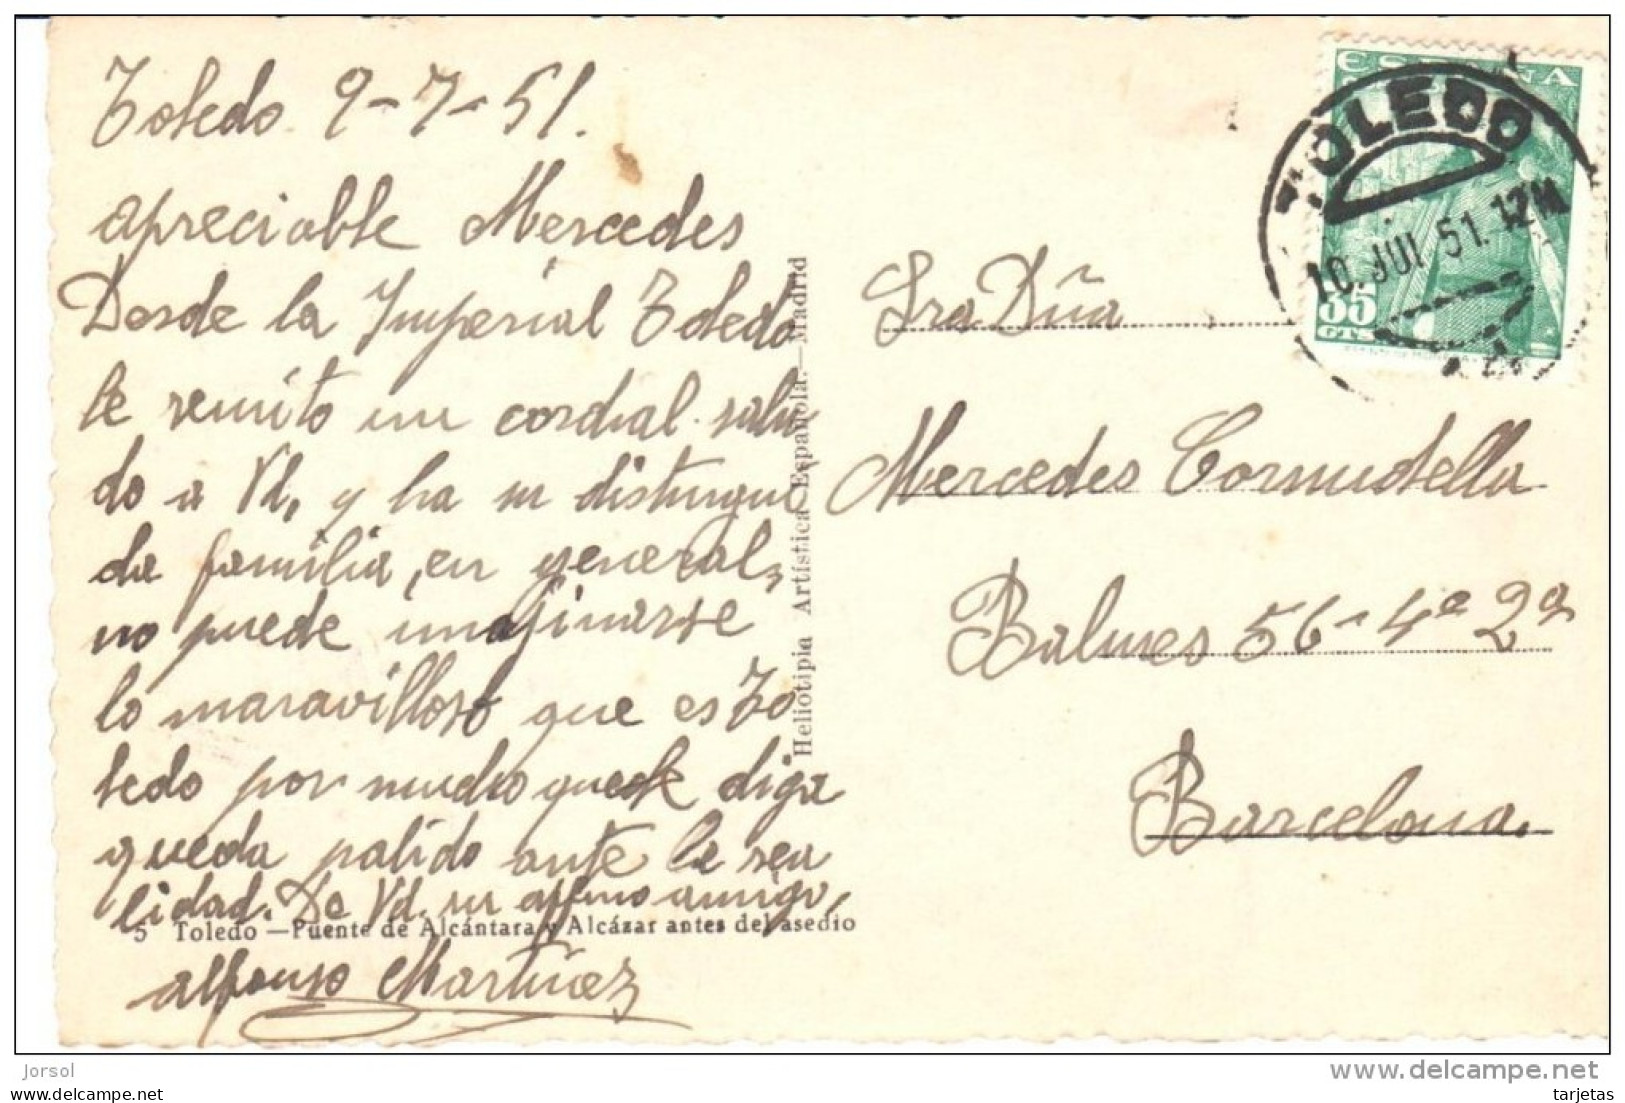 Toledo 9-7-51.
apreciable Mercedes
Desde la Imperial Toledo
le remito un cordial salu
do a Vd, y ha su distingui
da familia, en general,
no puede imajinarse
lo maravilloso que es To
ledo por mucho que se le diga
queda palido ante la rea
lidad. De Vd. su affmo amigo,
alfonso Martinez
5 Toledo —Puente de Alcántara y Alcázar antes del asedio
Heliotipia Artística Española.—Madrid
ESPAÑA
35
CTS
TOLEDO
10. JUL 51. 12M
Sra Dña
Mercedes Cornudella
Balmes 56-4º 2ª
Barcelona.
Jorsol
www.delcampe.net
tarjetas